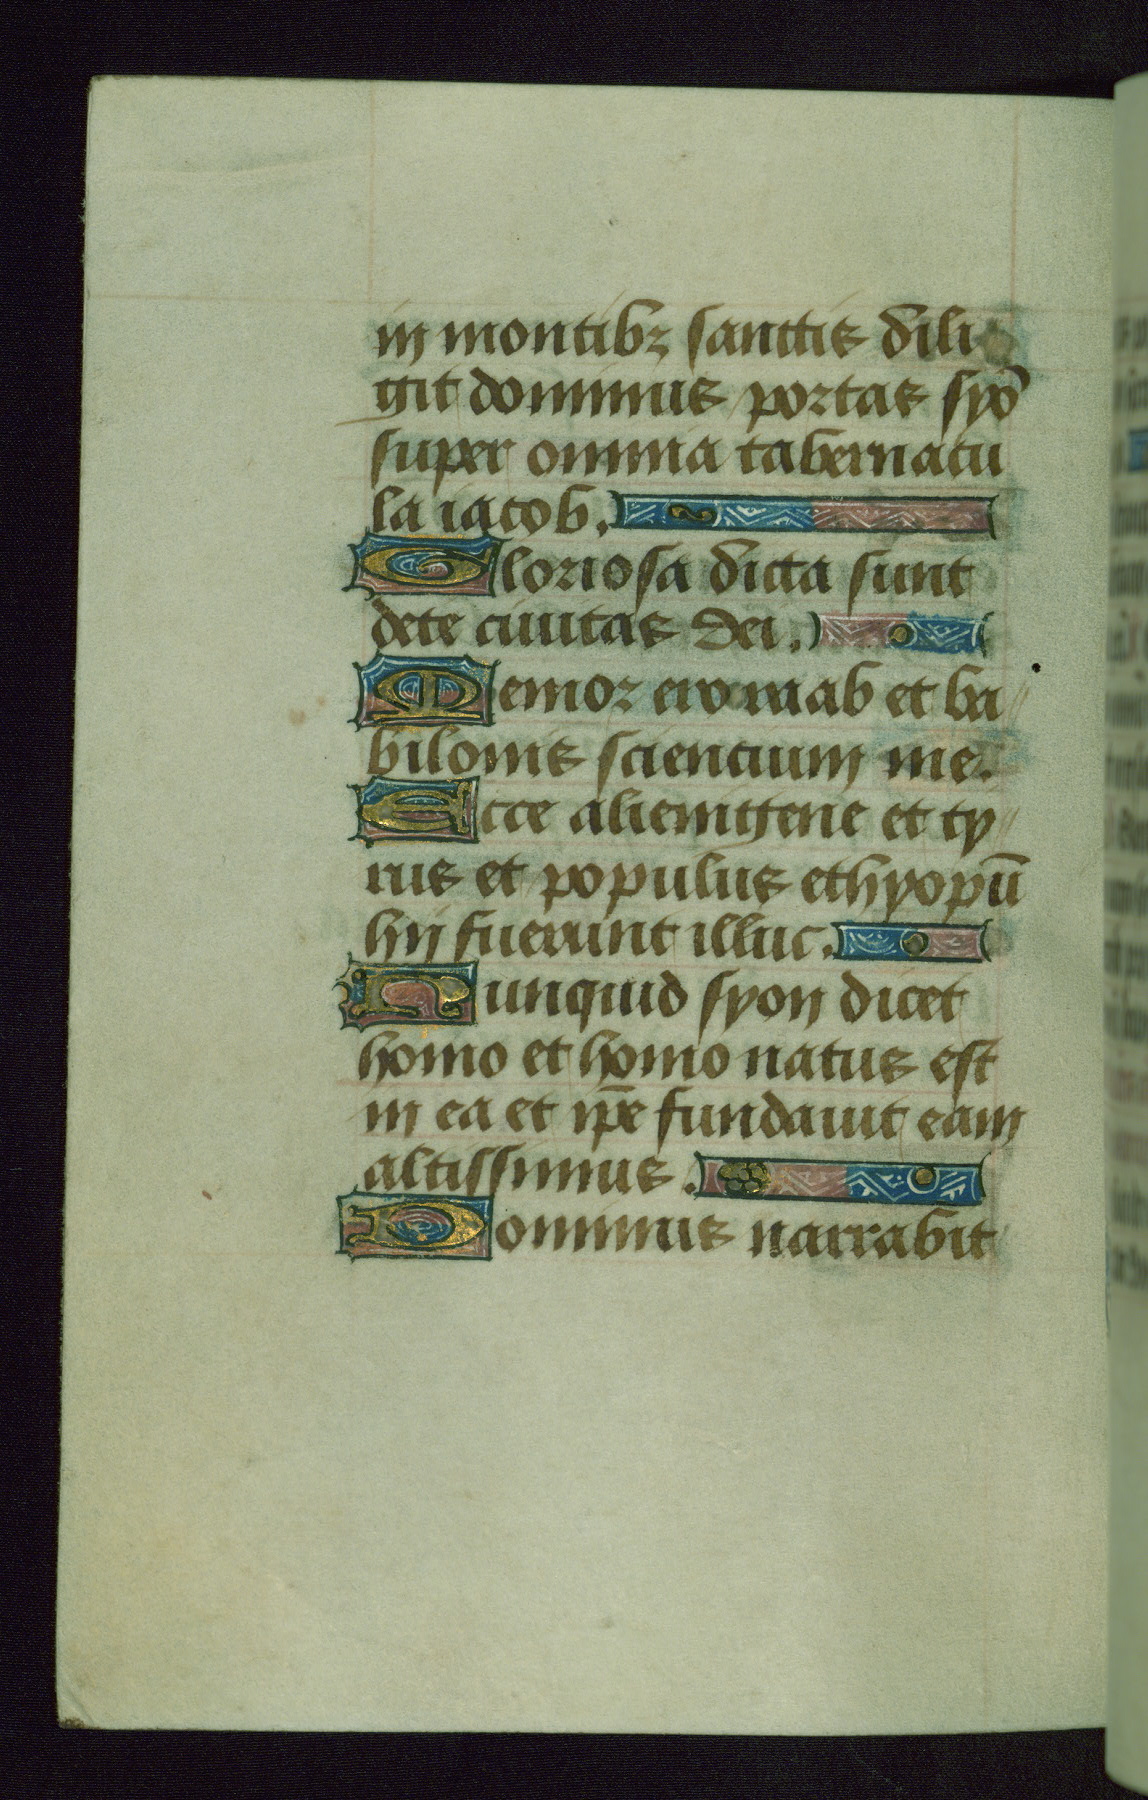 in montibꝫ sanctis dili
git dominus portas syō
super omnia tabernacu
la iacob.
Gloriosa dicta sunt
dete ciuitas dei.
Memor ero raab et ba
bilonis sciencium me.
Ecce alienigene et ty
rus et populus ethyopū
hij fuerunt illuc.
Nunquid syon dicet
homo et homo natus est
in ea et ip̄e fundauit eam
altissimus.
Dominus narrabit